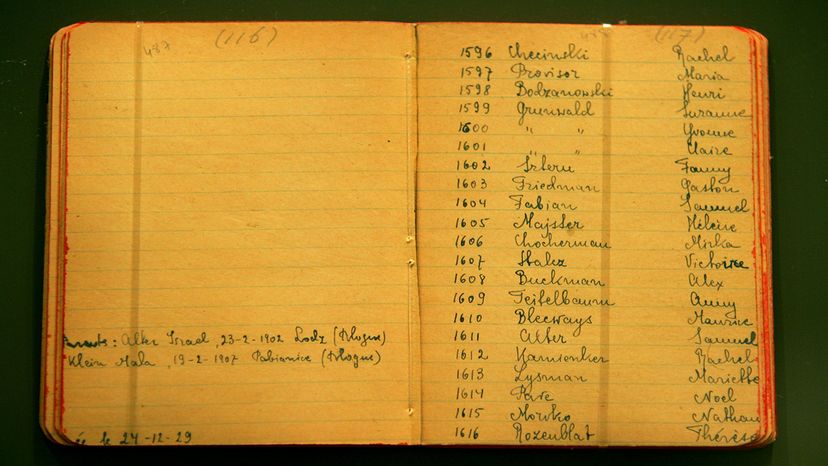 487
(116)
(117)
1596 Checinski Rachel
1597 Provisor Maria
1598 Bodzanowski Henri
1599 Grunwald Suzanne
1600 " " Yvonne
1601 " " Claire
1602 Sztern Fanny
1603 Friedman Gaston
1604 Fabian Samuel
1605 Majster Hélène
1606 Chocherman Mirka
1607 Victoire
1608 Buckman Alex
1609 Teitelbaum Anny
1610 Bleeways Maurice
1611 Alter Samuel
1612 Kamionker Rachel
1613 Lysman Mariette
1614 Noel
1615 Nathan
1616 Rozenblat Thérèse
: Alter Israel, 23-2-1902 Lodz (Pologne)
Klein Mala, 19-2-1907 Pabianice (Pologne)
le 24-12-29